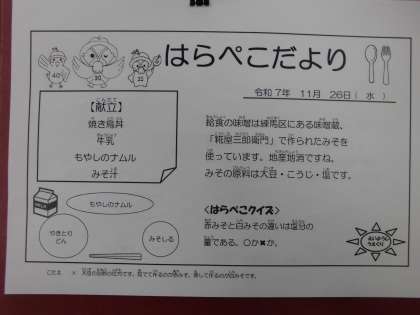 はらぺこだより
令和7年 11月 26日（水）
【献立】
焼き鳥丼
牛乳
もやしのナムル
みそ汁
給食の味噌は練馬区にある味噌蔵、
「糀屋三郎衛門」で作られたみそを
使っています。地産地消ですね。
みその原料は大豆・こうじ・塩です。
もやしのナムル
やきとり
どん
みそしる
＜はらぺこクイズ＞
赤みそと白みその違いは塩分の
量である。○か✖か。